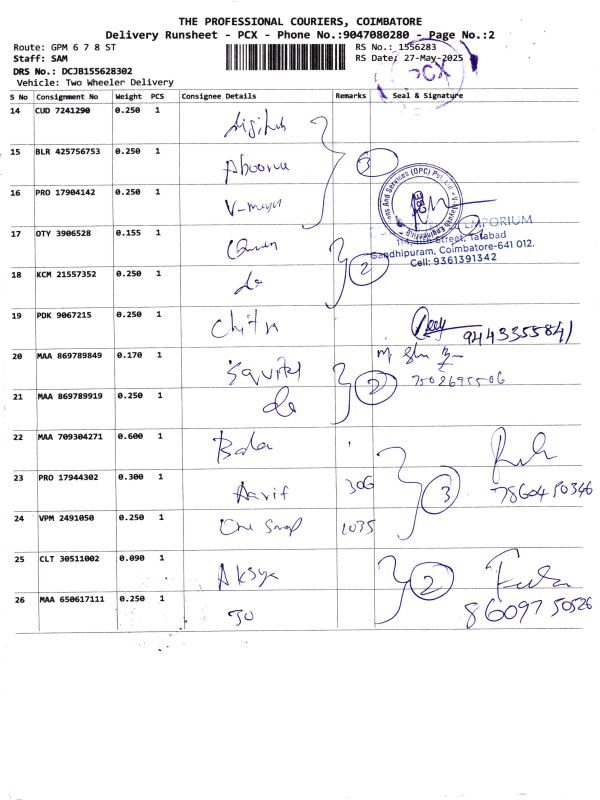 THE PROFESSIONAL COURIERS, COIMBATORE
Delivery Runsheet - PCX - Phone No.:9047080280 - Page No.:2
Route: GPM 6 7 8 ST
RS No.: 1556283
Staff: SAM
RS Date: 27-May-2025
DRS No.: DCJB155628302
Vehicle: Two Wheeler Delivery
PCX
S No Consignment No Weight PCS Consignee Details Remarks Seal & Signature
14 CUD 7241290 0.250 1
15 BLR 425756753 0.250 1
3
16 PRO 17904142 0.250 1
17 OTY 3906528 0.155 1
EMPORIUM
Street, Tatabad
Gandhipuram, Coimbatore-641 012.
Cell: 9361391342
2
18 KCM 21557352 0.250 1 do
19 PDK 9067215 0.250 1 Chitra
9443355841
20 MAA 869789849 0.170 1
7502695506
2
21 MAA 869789919 0.250 1 do
22 MAA 709304271 0.600 1 Bala
23 PRO 17944302 0.300 1 Aarif 306
3
7860450346
24 VPM 2491050 0.250 1 One Snap 1035
25 CLT 30511002 0.090 1 Aksya
2
26 MAA 650617111 0.250 1 Jo
8609750526